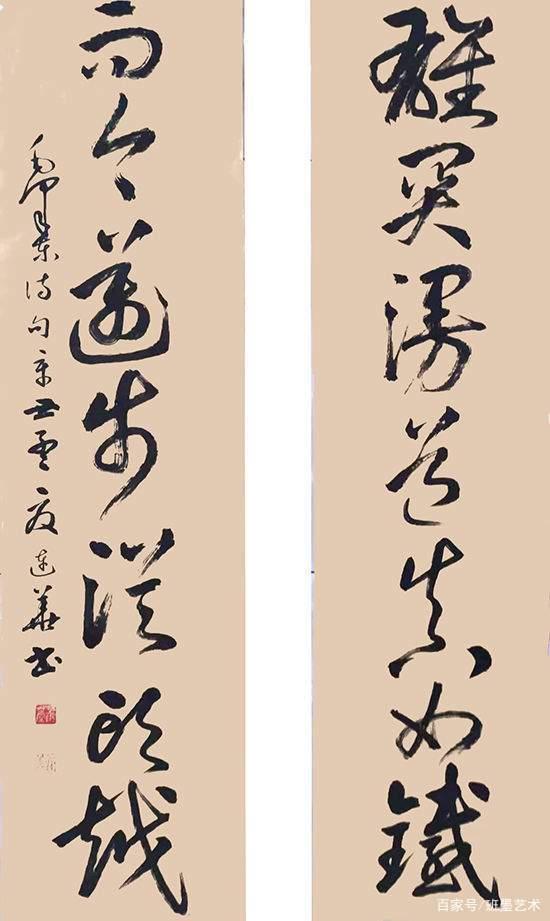 雄関漫道真如鐵
而今邁步從頭越
毛澤東詩句辛丑孟夏連華書
百家号/班墨艺术